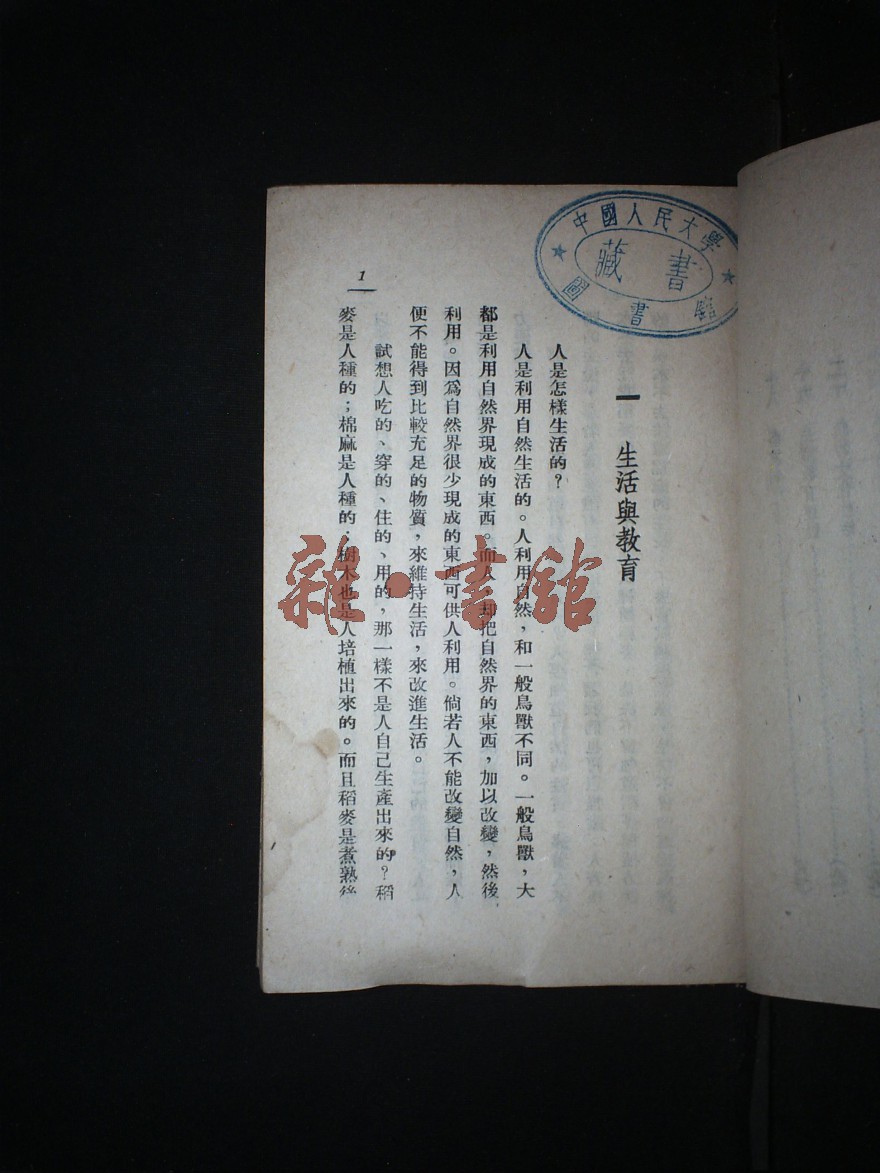 中國人民大學
藏書
圖書館
一 生活與教育
人是怎樣生活的？
人是利用自然生活的。人利用自然，和一般鳥獸不同。一般鳥獸，大
都是利用自然界現成的東西。而人，却把自然界的東西，加以改變，然後
利用。因爲自然界很少現成的東西可供人利用。倘若人不能改變自然，人
便不能得到比較充足的物質，來維持生活，來改進生活。
試想人吃的、穿的、住的、用的，那一樣不是人自己生產出來的？稻
麥是人種的；棉麻是人種的；樹木也是人培植出來的。而且稻麥是煮熟後
1
雜·書館